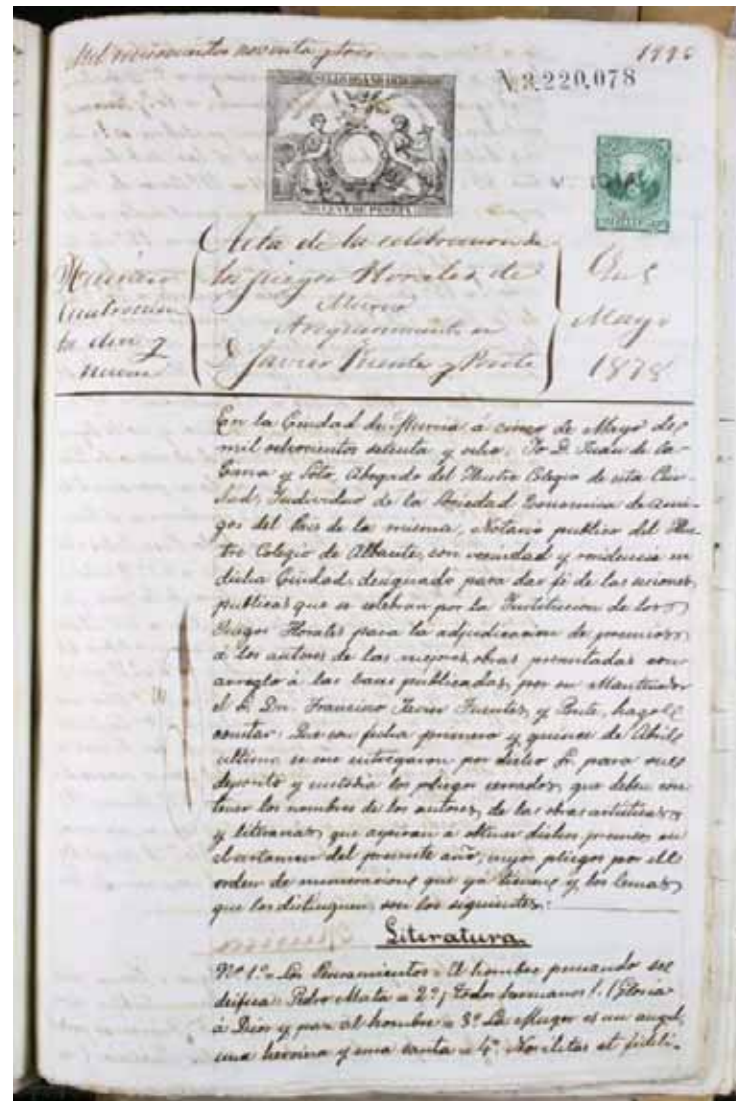 Mil novecientos noventa y tres
1995
N 3.220,078
SELLO 10.º AÑO 1878
UNA PESETA
Acta de la celebracion de
los juegos Florales de
Murcia
A requerimiento de
D. Javier Fuentes y Ponte
Numero
Cuatrocien
tos diez y
nueve
En 5
Mayo
1878
En la Ciudad de Murcia, á cinco de Mayo de
mil ochocientos setenta y ocho: Yo D. Juan de la
Cierva y Soto, Abogado del Ilustre Colegio de esta Ciu-
dad, Individuo de la Sociedad Economica de Ami-
gos del Pais de la misma, Notario publico del Ilus-
tre Colegio de Albacete, con vecindad y residencia en
dicha Ciudad, designado para dar fé de las sesiones
publicas que se celebran por la Institucion de los
Juegos Florales para la adjudicacion de premios
á los autores de las mejores obras presentadas con
arreglo á las bases publicadas, por su Mantenedor
el S. Dn. Francisco Javier Fuentes y Ponte, hago
constar: Que con fecha primero y quince de Abril
ultimo se me entregaron por dicho Sr. para su
deposito y custodia los pliegos cerrados, que deben con
tener los nombres de los autores, de las obras artisticas
y literarias, que aspiran á obtener dichos premios en
el certamen del presente año, cuyos pliegos por el
orden de numeracion que ya tienen y los lemas
que los distinguen, son los siguientes:
Literatura.
Nº 1º Los Pensamientos: El hombre pensando se
deifica: Pedro Mata = 2º ¡Todos hermanos!. ¡Gloria
á Dios y paz al hombre = 3º La Muger es un angel,
una heroina y una santa = 4º Nobilitas et fideli-